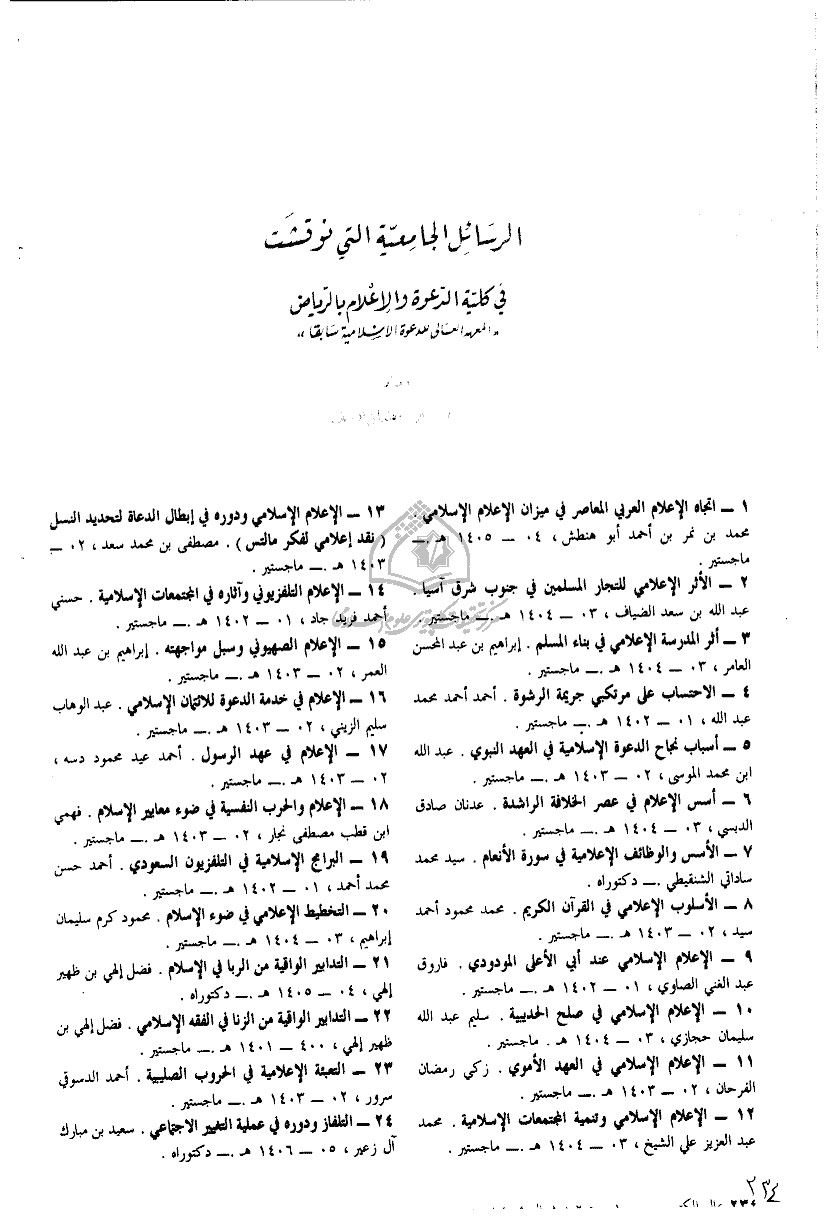 الرسائل الجامعية التي نوقشت
في كلية الدعوة والإعلام بالرياض
«المعهد العالي للدعوة الإسلامية سابقا»
١ ــ اتجاه الإعلام العربي المعاصر في ميزان الإعلام الإسلامي .
محمد بن نمر بن أحمد أبو هنطش ، ٠٤ ــ ١٤٠٥ هـ .ــ
ماجستير .
٢ ــ الأثر الإعلامي للتجار المسلمين في جنوب شرق آسيا .
عبد الله بن سعد الضياف ، ٠٣ ــ ١٤٠٤ هـ .ــ ماجستير .
٣ ــ أثر المدرسة الإعلامي في بناء المسلم . إبراهيم بن عبد المحسن
العامر ، ٠٣ ــ ١٤٠٤ هـ .ــ ماجستير .
٤ ــ الاحتساب على مرتكبي جريمة الرشوة . أحمد أحمد محمد
عبد الله ، ٠١ ــ ١٤٠٢ هـ .ــ ماجستير .
٥ ــ أسباب نجاح الدعوة الإسلامية في العهد النبوي . عبد الله
ابن محمد الموسى ، ٠٢ ــ ١٤٠٣ هـ .ــ ماجستير .
٦ ــ أسس الإعلام في عصر الخلافة الراشدة . عدنان صادق
الدبسي ، ٠٣ ــ ١٤٠٤ هـ .ــ ماجستير .
٧ ــ الأسس والوظائف الإعلامية في سورة الأنعام . سيد محمد
ساداتي الشنقيطي .ــ دكتوراه .
٨ ــ الأسلوب الإعلامي في القرآن الكريم . محمد محمود أحمد
سيد ، ٠٢ ــ ١٤٠٣ هـ .ــ ماجستير .
٩ ــ الإعلام الإسلامي عند أبي الأعلى المودودي . فاروق
عبد الغني الصاوي ، ٠١ ــ ١٤٠٢ هـ .ــ ماجستير .
١٠ ــ الإعلام الإسلامي في صلح الحديبية . سليم عبد الله
سليمان حجازي ، ٠٣ ــ ١٤٠٤ هـ . ماجستير .
١١ ــ الإعلام الإسلامي في العهد الأموي . زكي رمضان
الفرحان ، ٠٢ ــ ١٤٠٣ هـ .ــ ماجستير .
١٢ ــ الإعلام الإسلامي وتنمية المجتمعات الإسلامية . محمد
عبد العزيز علي الشيخ ، ٠٣ ــ ١٤٠٤ هـ .ــ ماجستير .
١٣ ــ الإعلام الإسلامي ودوره في إبطال الدعاة لتحديد النسل
( نقد إعلامي لفكر مالتس ) . مصطفى بن محمد سعد ، ٠٢ ــ
١٤٠٣ هـ .ــ ماجستير .
١٤ ــ الإعلام التلفزيوني وآثاره في المجتمعات الإسلامية . حسني
أحمد فريد جاد ، ٠١ ــ ١٤٠٢ هـ .ــ ماجستير .
١٥ ــ الإعلام الصهيوني وسبل مواجهته . إبراهيم بن عبد الله
العمر ، ٠٢ ــ ١٤٠٣ هـ .ــ ماجستير .
١٦ ــ الإعلام في خدمة الدعوة للائتمان الإسلامي . عبد الوهاب
سليم الزيني ، ٠٢ ــ ١٤٠٣ هـ .ــ ماجستير .
١٧ ــ الإعلام في عهد الرسول . أحمد عيد محمود دسه ،
٠٢ ــ ١٤٠٣ هـ .ــ ماجستير .
١٨ ــ الإعلام والحرب النفسية في ضوء معايير الإسلام . فهمي
ابن قطب مصطفى نجار ، ٠٢ ــ ١٤٠٣ هـ .ــ ماجستير .
١٩ ــ البرامج الإسلامية في التلفزيون السعودي . أحمد حسن
محمد أحمد ، ٠١ ــ ١٤٠٢ هـ .ــ ماجستير .
٢٠ ــ التخطيط الإعلامي في ضوء الإسلام . محمود كرم سليمان
إبراهيم ، ٠٣ ــ ١٤٠٤ هـ .ــ ماجستير .
٢١ ــ التدابير الواقية من الربا في الإسلام . فضل إلهي بن ظهير
إلهي ، ٠٤ ــ ١٤٠٥ هـ .ــ دكتوراه .
٢٢ ــ التدابير الواقية من الزنا في الفقه الإسلامي . فضل إلهي بن
ظهير إلهي ، ٤٠٠ ــ ١٤٠١ هـ .ــ ماجستير .
٢٣ ــ التعبئة الإعلامية في الحروب الصليبية . أحمد الدسوقي
سرور ، ٠٢ ــ ١٤٠٣ هـ .ــ ماجستير .
٢٤ ــ التلفاز ودوره في عملية التغيير الاجتماعي . سعيد بن مبارك
آل زعير ، ٠٥ ــ ١٤٠٦ هـ .ــ دكتوراه .
٢٣٤
٢٣٤